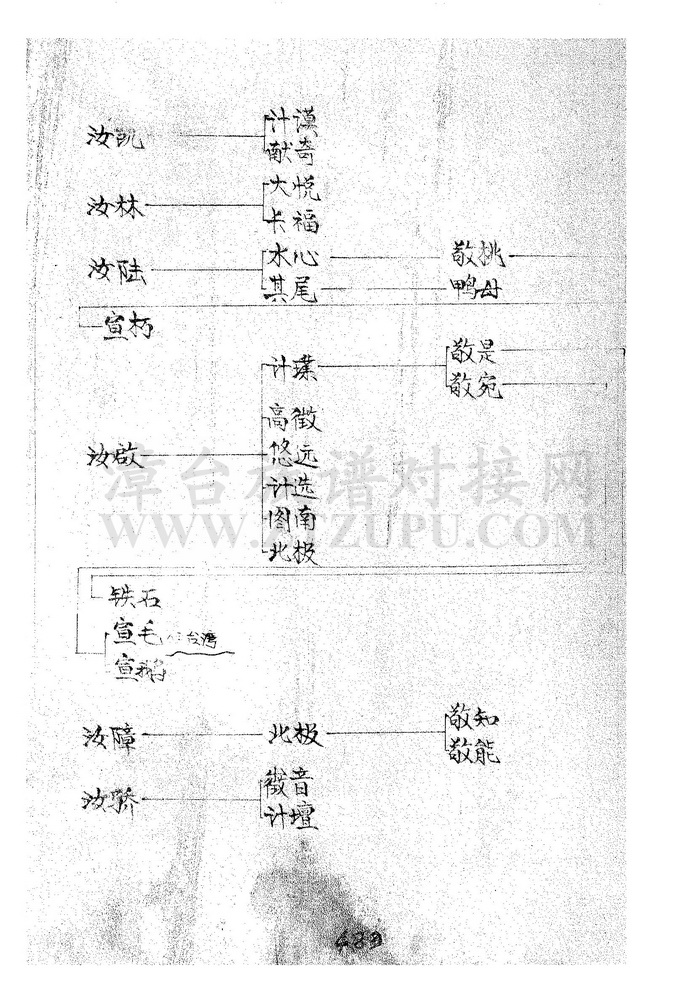 计谟
汝凯
献奇
大悦
汝林
卡福
水心 敬桃
汝陆
其尾 鸭母
宣朽
敬是
计璞
敬宛
高徵
汝啟 悠远
计选
图南
北极
铁石
宣毛 台湾
宣
敬知
汝障 北极
敬能
徵音
汝骄
计壇
489
漳台族谱对接网
WWW.ZTZUPU.COM